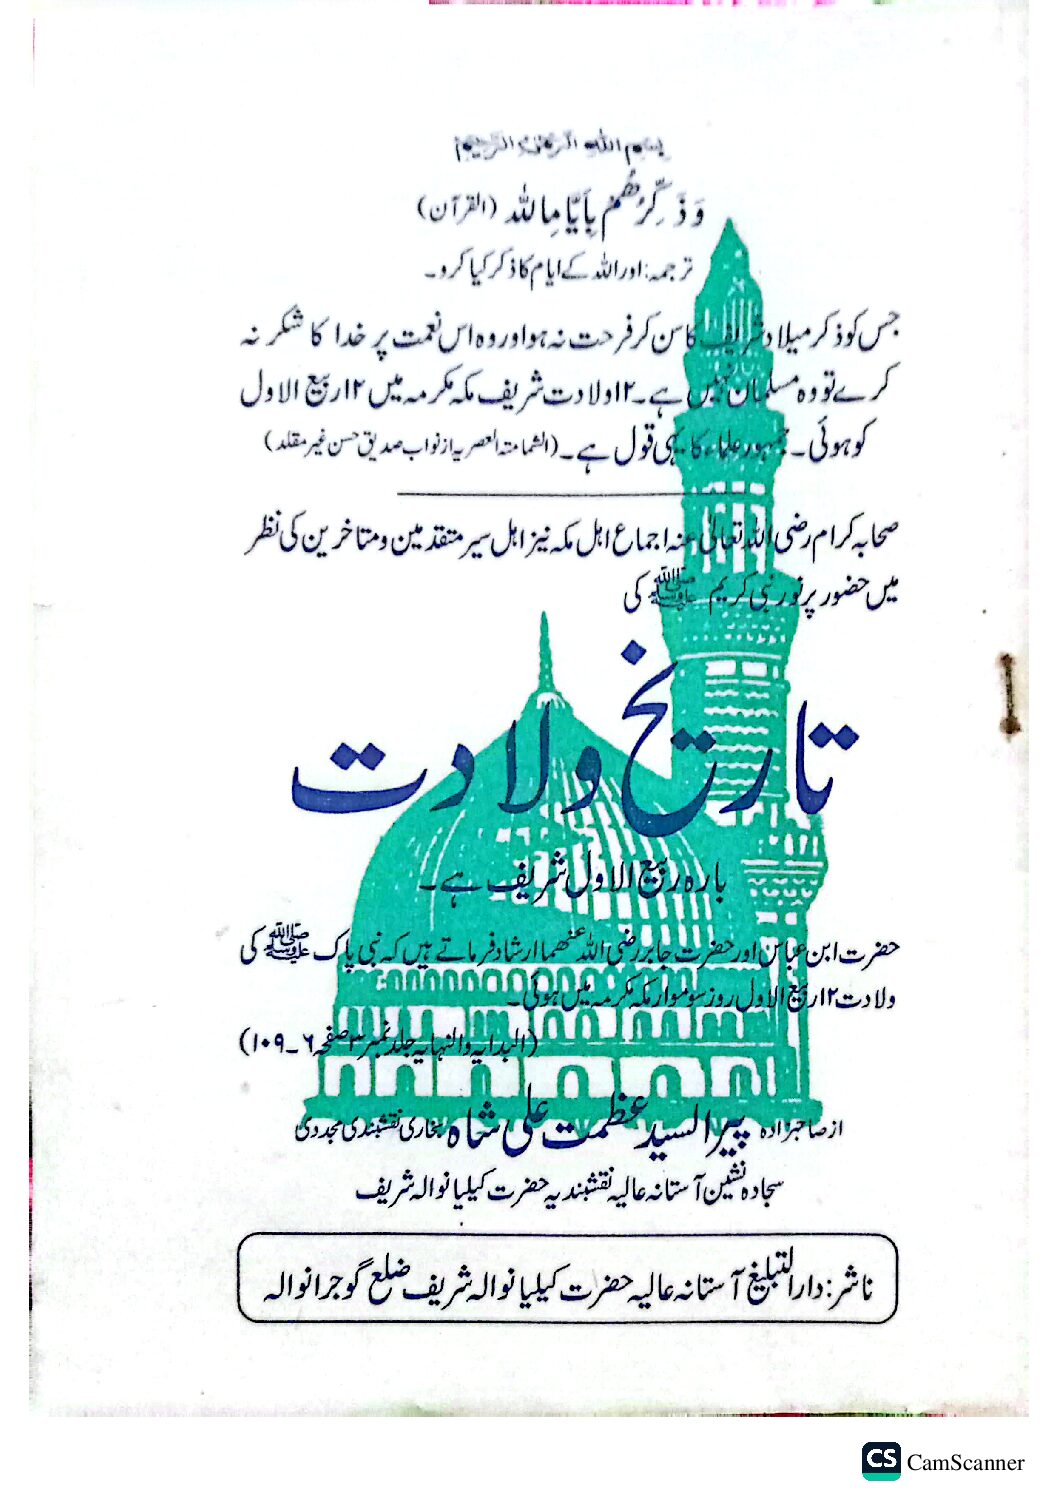 بسم اللہ الرحمٰن الرحیم
وَذَكِّرْهُمْ بِاَيَّامِ الله (القرآن)
ترجمہ: اور اللہ کے ایام کا ذکر کیا کرو۔
جس کو ذکر میلاد شریف کا سن کر فرحت نہ ہو اور وہ اس نعمت پر خدا کا شکر نہ
کرے تو وہ مسلمان نہیں ہے۔ ۱۲ ولادت شریف مکہ مکرمہ میں ۱۲ ربیع الاول
کو ہوئی۔ جمہور علماء کا یہی قول ہے۔ (الشمامتہ العصریہ از نواب صدیق حسن غیر مقلد)
صحابہ کرام رضی اللہ تعالیٰ عنہ اجماع اہل مکہ نیز اہل سیر متقدمین و متاخرین کی نظر
میں حضور پر نور نبی کریم ﷺ کی
تاریخ ولادت
بارہ ربیع الاول شریف ہے۔
حضرت ابن عباس اور حضرت جابر رضی اللہ عنھما ارشاد فرماتے ہیں کہ نبی پاک ﷺ کی
ولادت ۱۲ ربیع الاول روز سوموار مکہ مکرمہ میں ہوئی۔
(البدایہ والنہایہ جلد نمبر ۳ صفحہ ۶۔۱۰۹)
از صاحبزادہ پیر السید عظمت علی شاہ بخاری نقشبندی مجددی
سجادہ نشین آستانہ عالیہ نقشبندیہ حضرت کیلیانوالہ شریف
ناشر: دارالتبلیغ آستانہ عالیہ حضرت کیلیانوالہ شریف ضلع گوجرانوالہ
CS CamScanner